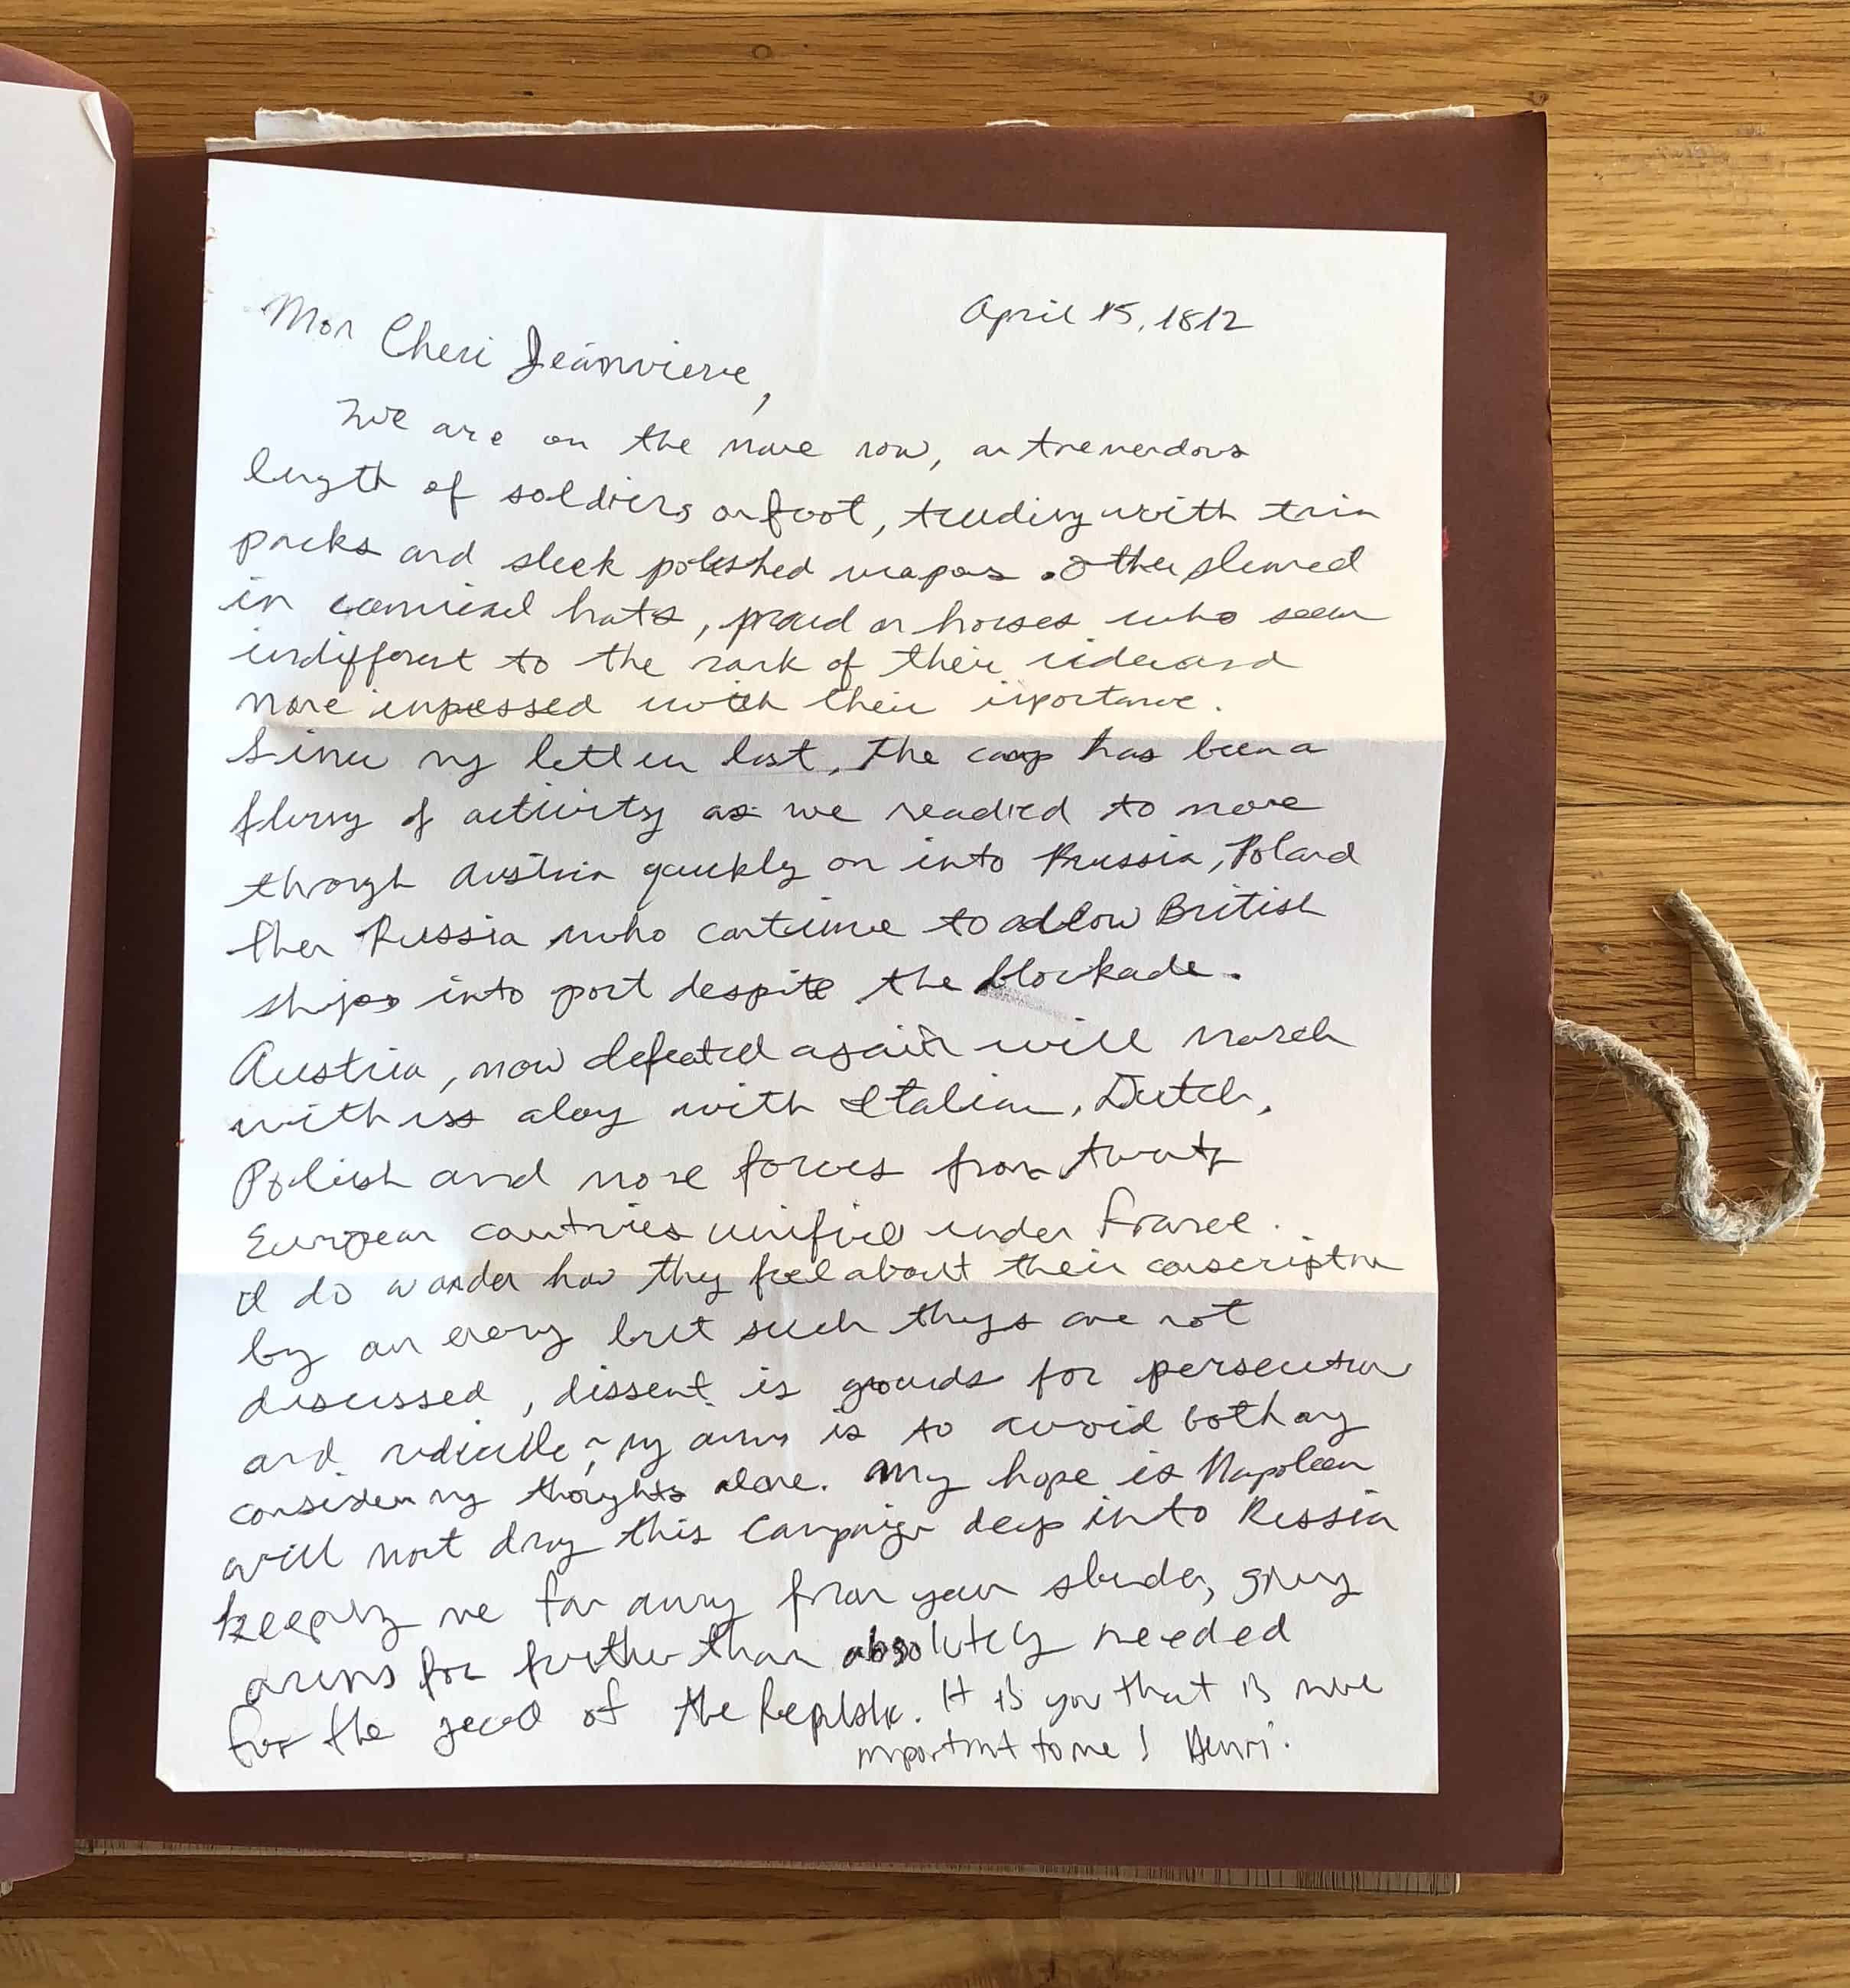 April 15, 1812
Mon Cheri Jeanvieve,
We are on the move now, a tremendous
length of soldiers on foot, treading with trim
packs and sleek polished weapons. Other plumed
in comical hats, proud on horses who seem
indifferent to the rank of their rider and
more impressed with their importance.
Since my letter last, the camp has been a
flurry of activity as we readied to move
through Austria quickly on into Prussia, Poland
then Russia who continue to allow British
ships into port despite the blockade.
Austria, now defeated again will march
with us along with Italian, Dutch,
Polish and more forces from twenty
European countries unified under France.
I do wonder how they feel about their conscription
by an enemy but such things are not
discussed, dissent is grounds for persecution
and ridicule, my aim is to avoid both any
consider my thoughts alone. My hope is Napoleon
will not drag this campaign deep into Russia
keeping me far away from your slender, giving
arms for further than absolutely needed
for the good of the Republic. It is you that is more
important to me! Henri.